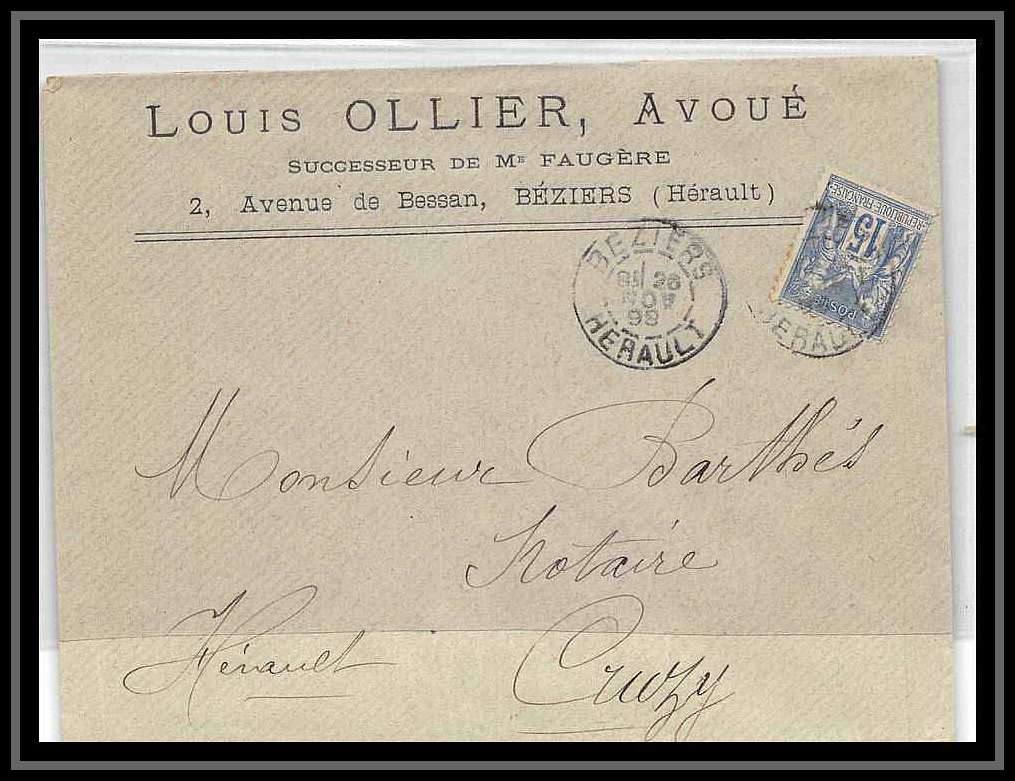 LOUIS OLLIER, AVOUÉ
SUCCESSEUR DE ME FAUGÈRE
2, Avenue de Bessan, BÉZIERS (Hérault)
REPUBLIQUE FRANÇAISE
15
POSTE
BEZIERS
26
NOV
98
HERAULT
HERAUL
Monsieur Barthés
Notaire
Hérault
Cruzy